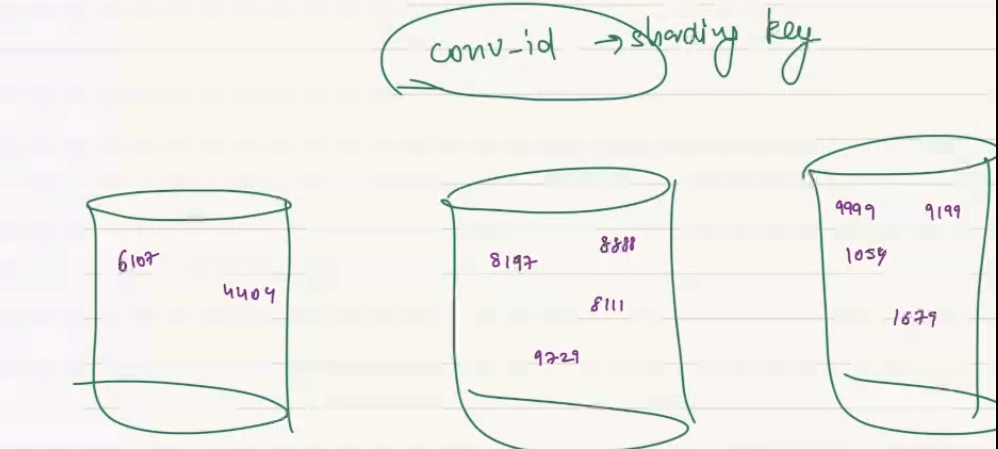 conv-id → sharding key
6107
4404
8197 8888
8111
9729
9999 9199
1054
1679